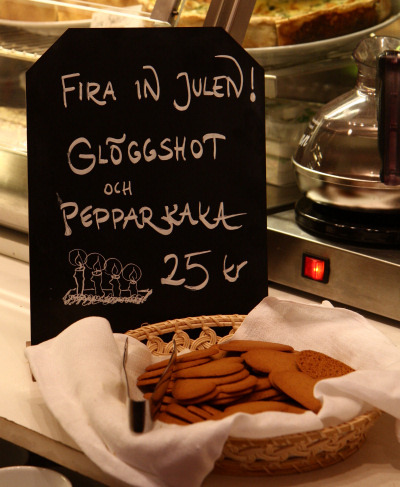 FIRA IN JULEN!
GLÖGGSHOT
OCH
PEPPARKAKA
25 kr